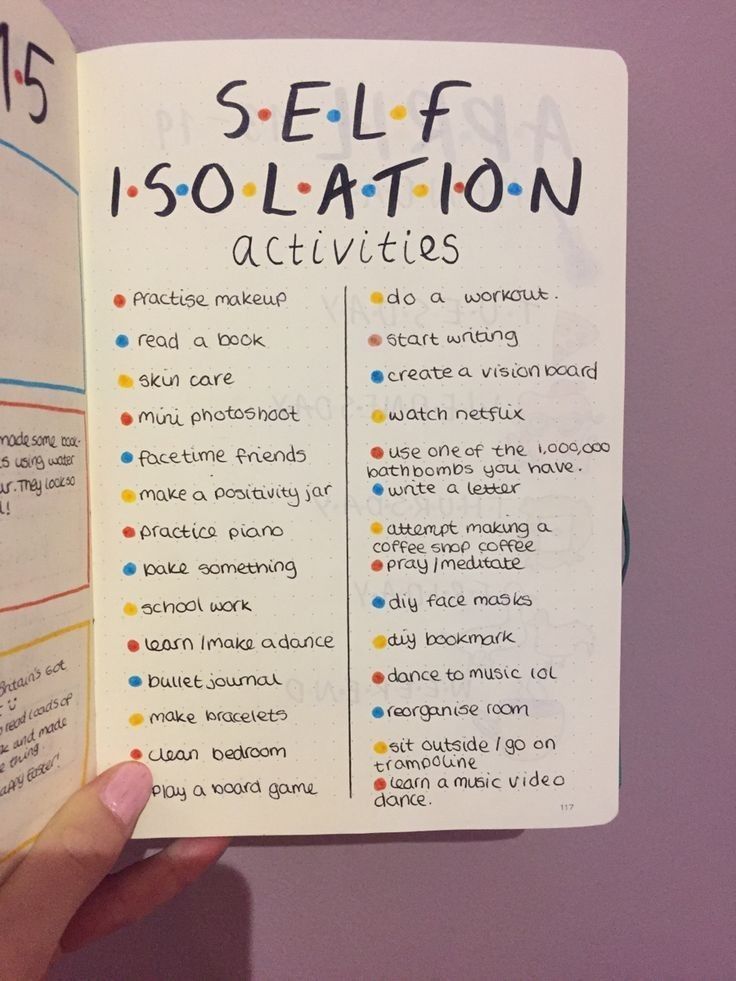 1.5
made some book-
s using water
ur. They look so
l!
Britain's Got
read loads of
k and made
e thing.
appy Easter!
S.E.L.F
I.S.O.L.A.T.I.O.N
activities
practise makeup
read a book
skin care
mini photoshoot
facetime friends
make a positivity jar
practice piano
bake something
school work
learn / make a dance
bullet journal
make bracelets
clean bedroom
play a board game
do a workout.
start writing
create a vision board
watch netflix
use one of the 1,000,000
bathbombs you have.
write a letter
attempt making a
coffee shop coffee
pray / meditate
diy face masks
diy bookmark
dance to music lol
reorganise room
sit outside / go on
trampoline
learn a music video
dance.
117
APRIL 13-19
TUESDAY
WEDNESDAY
THURSDAY
WEEKEND